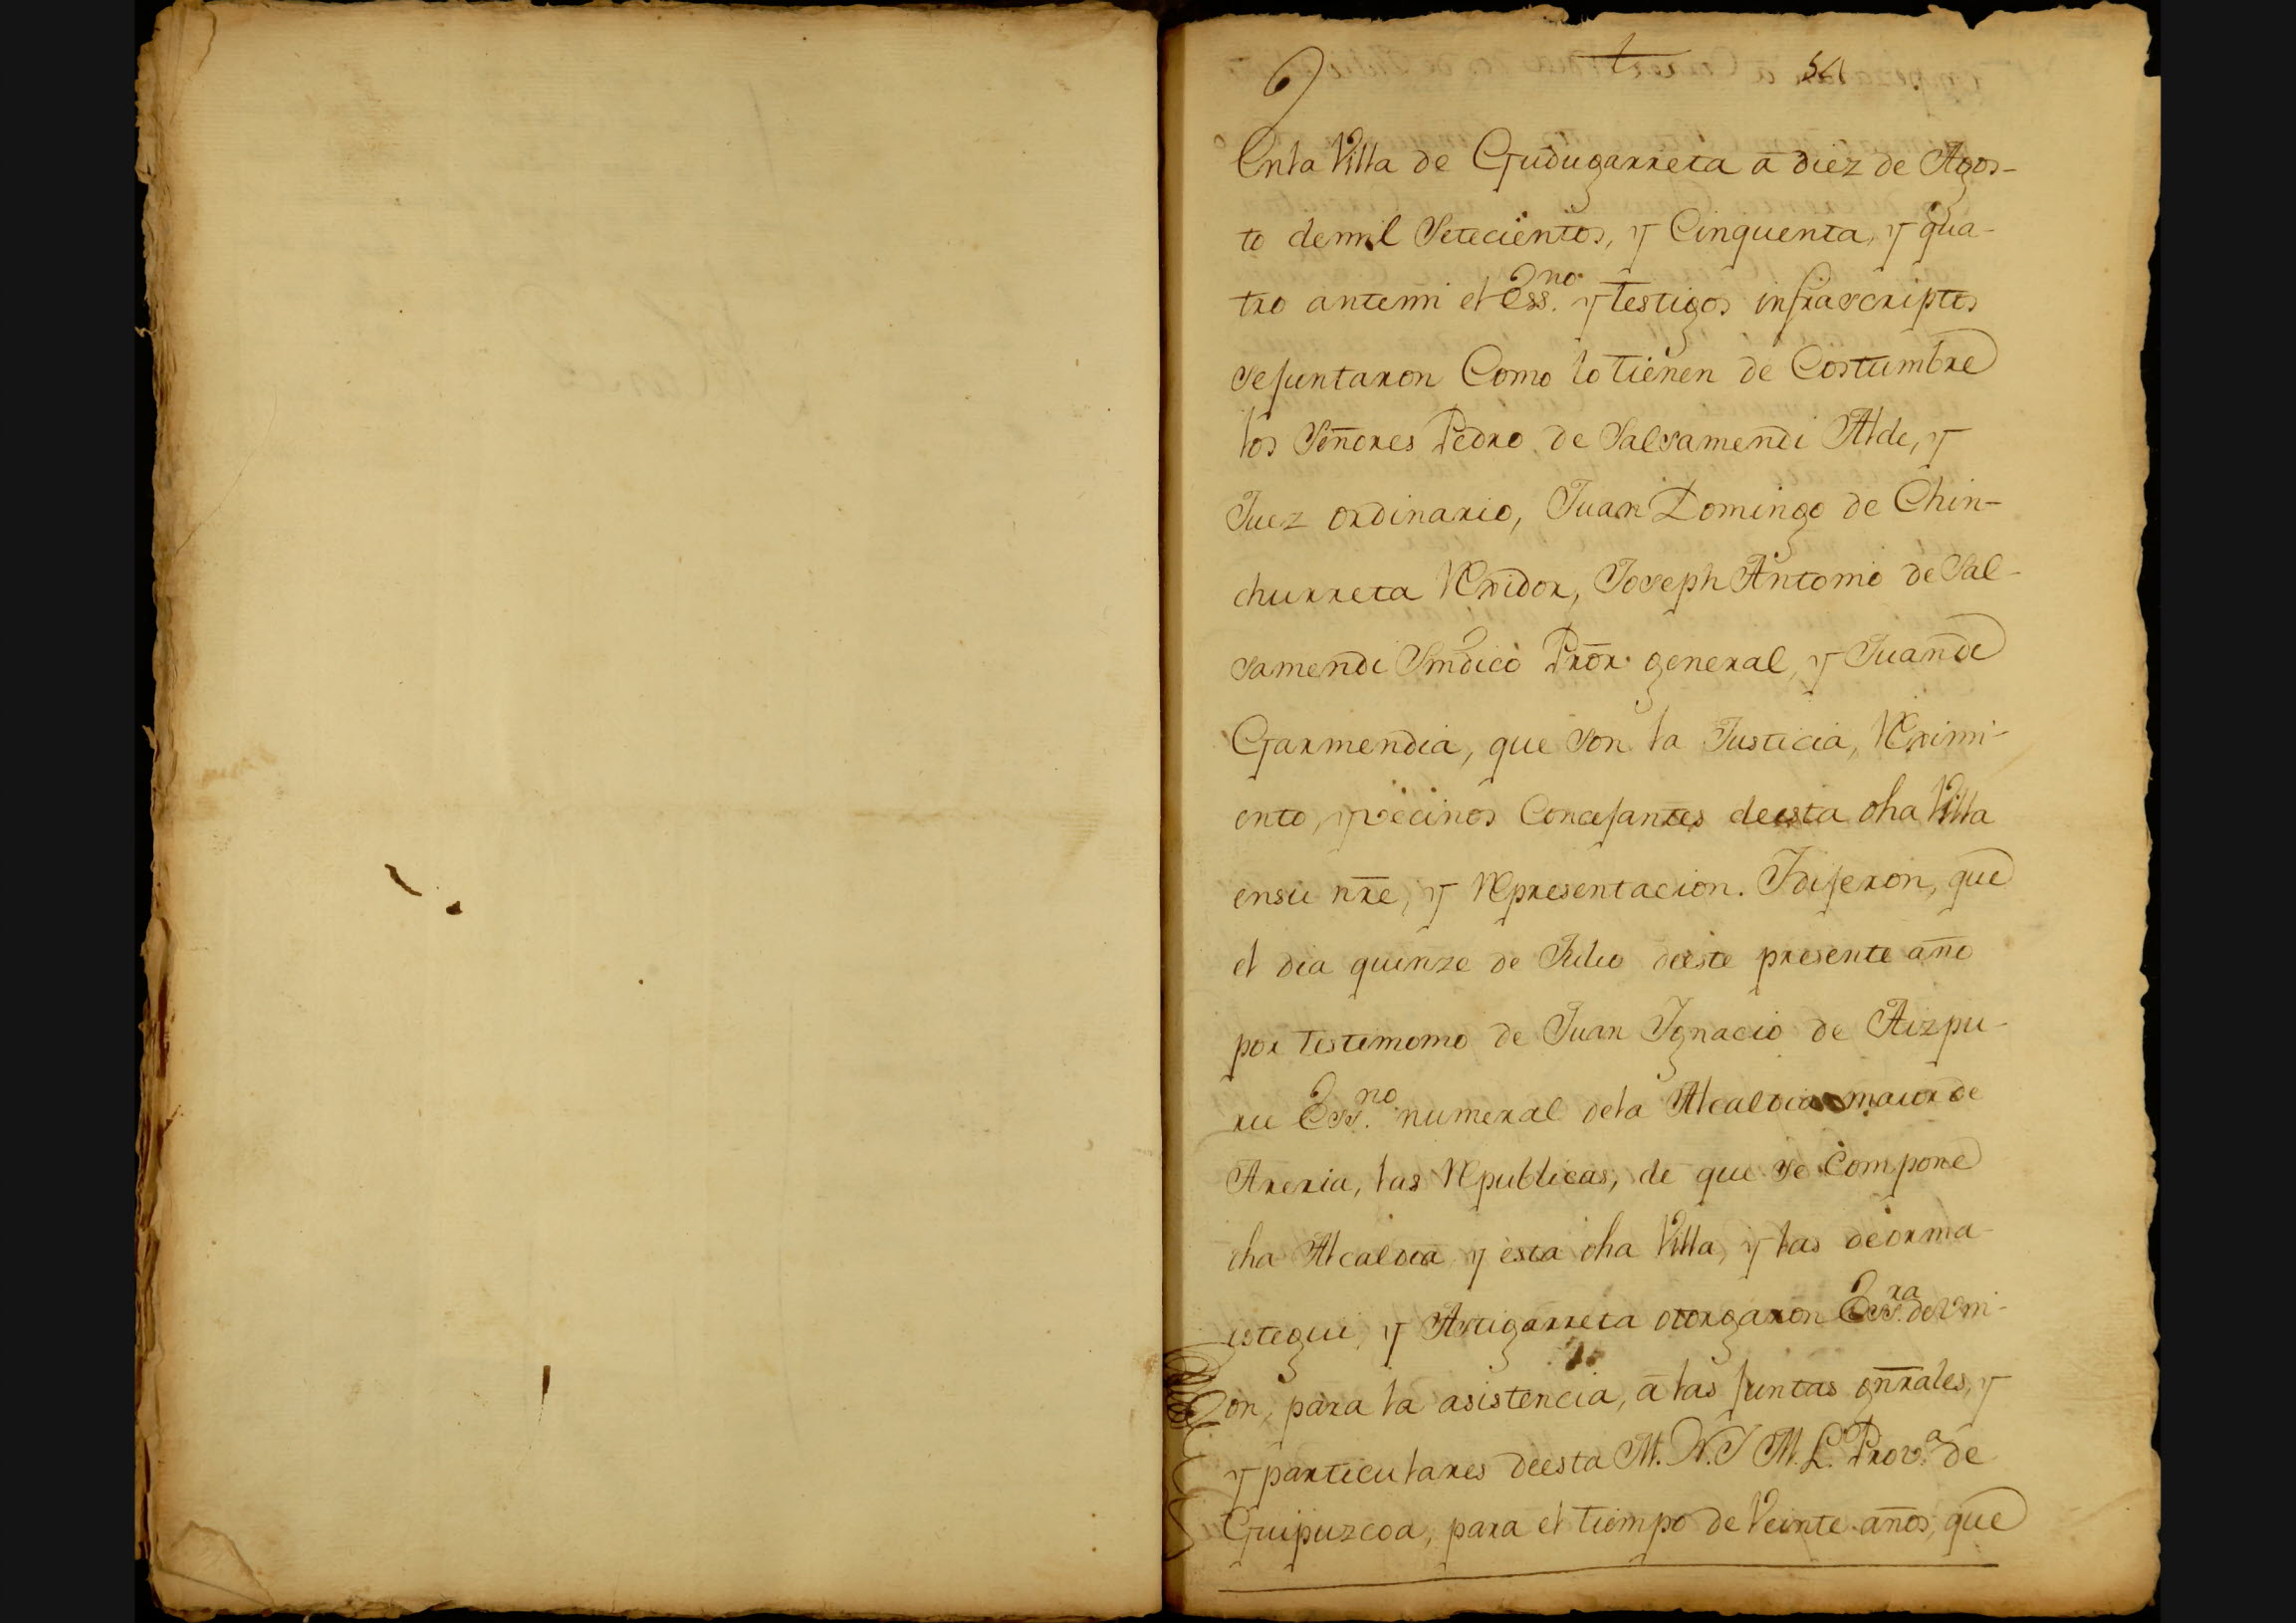 54
En la Villa de Gudugarreta a diez de Agos-
to de mil Setecientos, y Cinquenta, y qua-
tro ante mi el Ess.no y testigos infrascriptos
se juntaron Como lo tienen de Costumbre
los Señores Pedro de Salsamendi Alde, y
Juez ordinario, Juan Domingo de Chin-
churreta Rexidor, Joseph Antonio de Sal-
samendi Sindico Pror. general, y Juan de
Garmendia, que son la Justicia, Reximi-
ento, y vecinos Concejantes de esta dha Villa
en su nre, y Representacion. I dijeron, que
el dia quinze de Julio de este presente año
por testimonio de Juan Ignacio de Aizpu-
ru Ess.no numeral de la Alcaldia maior de
Areria, las Republicas, de que se Compone
dha Alcaldia y esta dha Villa, y las de orma-
iztegui, y Astigarreta otorgaron Ess.ra de Vni-
on, para la asistencia, a las Juntas gnrales, y
y particulares de esta M. N. Y M. L. Prov.a de
Guipuzcoa, para el tiempo de Veinte años, que